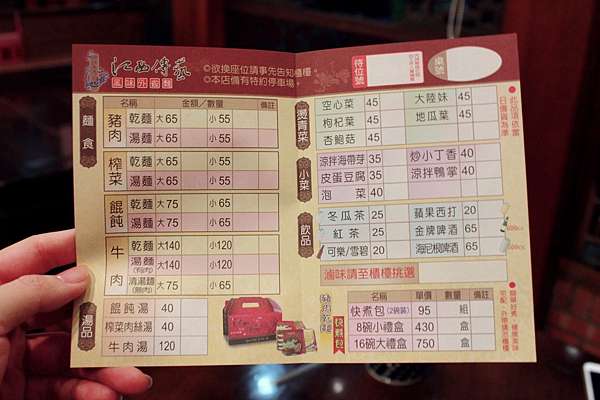 江西傳藝
風味外省麵
◎欲換座位請事先告知櫃檯
◎本店備有特約停車場
待位號
桌號
麵食
名稱 金額／數量 備註
豬肉
乾麵 大65 小55
湯麵 大65 小55
榨菜
乾麵 大65 小55
湯麵 大65 小55
餛飩
乾麵 大75 小65
湯麵 大75 小65
牛肉
乾麵 大140 小120
湯麵 大140 小120
清湯麵 大75 小65
湯品
餛飩湯 40
榨菜肉絲湯 40
牛肉湯 120
燙青菜
空心菜 45 大陸妹 45
枸杞葉 45 地瓜葉 45
杏鮑菇 45
此品項依當日備貨為準
小菜
涼拌海帶芽 35 炒小丁香 40
皮蛋豆腐 35 涼拌鴨掌 40
泡菜 40
飲品
冬瓜茶 25 蘋果西打 20
紅茶 25 金牌啤酒 65
可樂/雪碧 20 海尼根啤酒 65
600cc
滷味請至櫃檯挑選
快煮包
名稱 單價 數量 備註
快煮包(2碗裝) 95 組
8碗小禮盒 430 盒
16碗大禮盒 750 盒